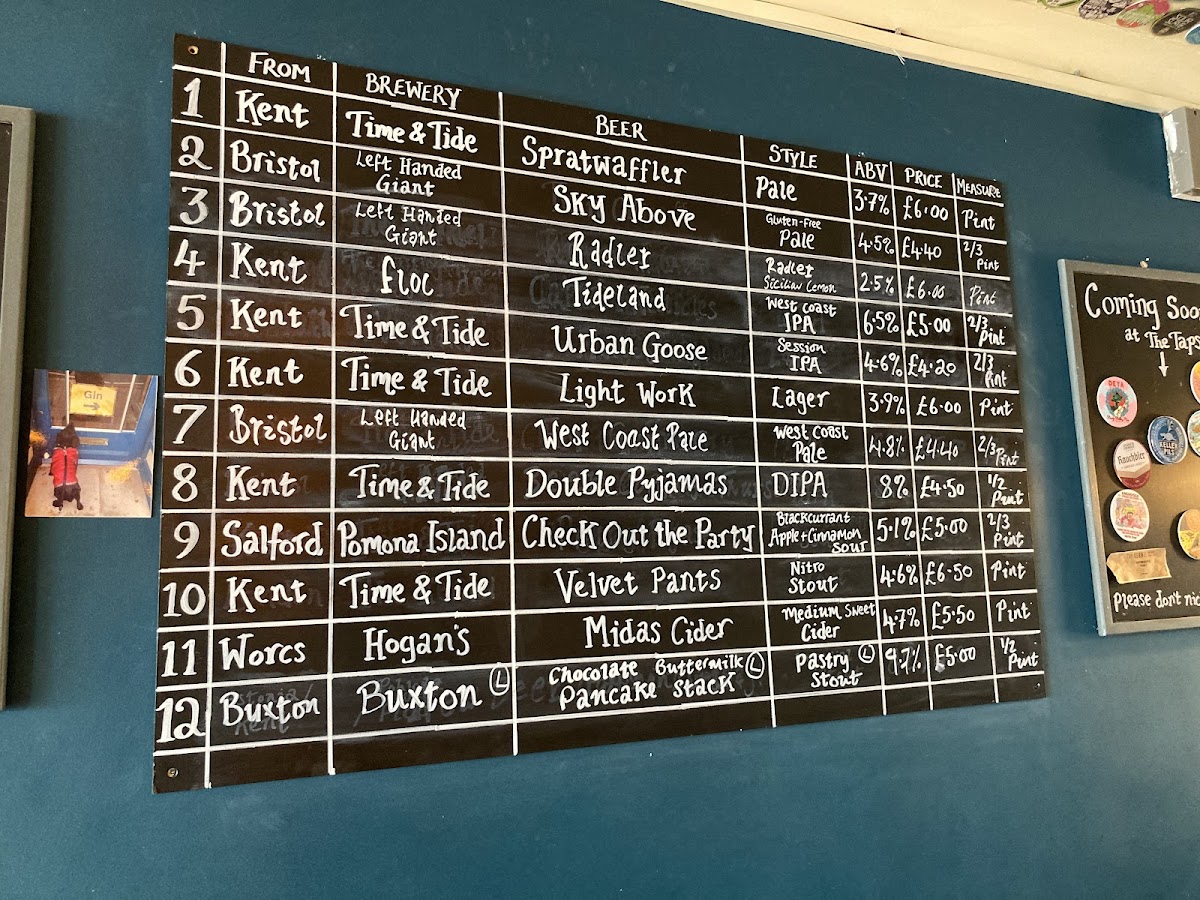 FROM BREWERY BEER STYLE ABV PRICE MEASURE
1 Kent Time & Tide Spratwaffler Pale 3.7% £6.00 Pint
2 Bristol Left Handed Giant Sky Above Gluten-Free Pale 4.5% £4.40 2/3 Pint
3 Bristol Left Handed Giant Radler Radler Sicilian Lemon 2.5% £6.00 Pint
4 Kent floc Tideland West Coast IPA 6.5% £5.00 2/3 Pint
5 Kent Time & Tide Urban Goose Session IPA 4.6% £4.20 2/3 Pint
6 Kent Time & Tide Light Work Lager 3.9% £6.00 Pint
7 Bristol Left Handed Giant West Coast Pale West Coast Pale 4.8% £4.40 2/3 Pint
8 Kent Time & Tide Double Pyjamas DIPA 8% £4.50 1/2 Pint
9 Salford Pomona Island Check Out the Party Blackcurrant Apple + Cinnamon Sour 5.1% £5.00 2/3 Pint
10 Kent Time & Tide Velvet Pants Nitro Stout 4.6% £6.50 Pint
11 Worcs Hogan's Midas Cider Medium Sweet Cider 4.7% £5.50 Pint
12 Buxton Buxton L Chocolate Buttermilk Pancake Stack L Pastry Stout L 9.7% £5.00 1/2 Pint
Gin
Coming Soo
at The Taps
DEYA
KELLER PILS
Rauchbier
Please don't nic